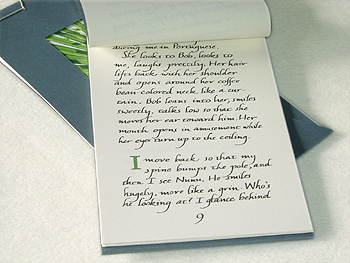 during me in Portuguese.
She looks to Bob, looks to
me, laughs prettily. Her hair
lifts back with her shoulder
and opens around her coffee
bean-colored neck like a cur-
tain. Bob leans into her, smiles
sweetly, talks low so that she
moves her ear toward him. Her
mouth opens in amusement while
her eyes turn up to the ceiling.
I move back so that my
spine bumps the pole, and
then I see Nunu. He smiles
hugely, more like a grin. Who's
he looking at? I glance behind
9